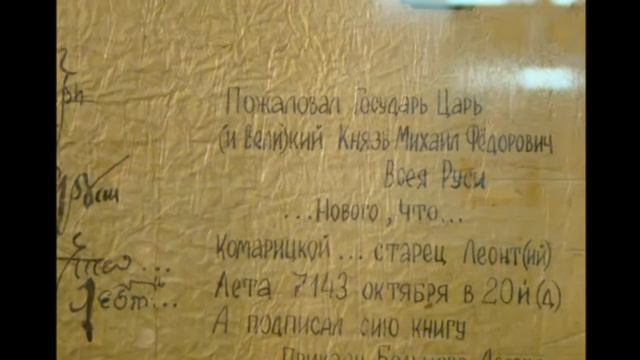 Пожаловал Государь Царь
(и Вели)кий Князь Михаил Фёдорович
Всея Руси
...Нового, что...
Комарицкой ... старец Леонт(ий)
Лета 7143 октября в 20й (д)
А подписал сию книгу